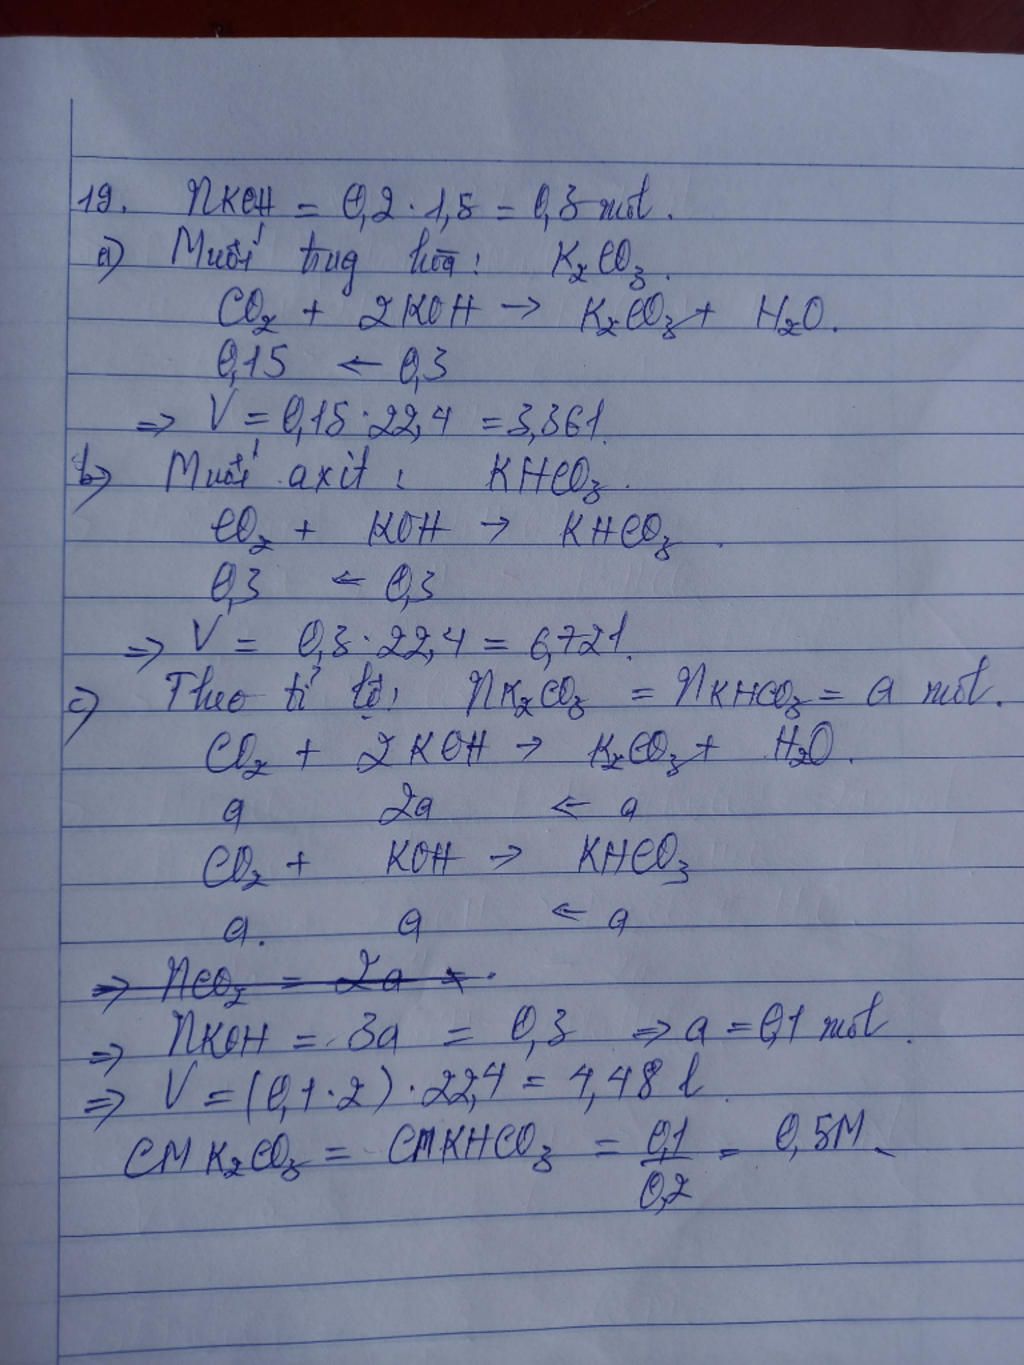 19. nKOH = 0,2 · 1,5 = 0,3 mol.
a) Muối trung hòa: K₂CO₃.
CO₂ + 2KOH → K₂CO₃ + H₂O.
0,15 ← 0,3
⇒ V = 0,15 · 22,4 = 3,36l.
b) Muối axit: KHCO₃.
CO₂ + KOH → KHCO₃.
0,3 ← 0,3
⇒ V = 0,3 · 22,4 = 6,72l.
c) Theo tỉ lệ: nK₂CO₃ = nKHCO₃ = a mol.
CO₂ + 2KOH → K₂CO₃ + H₂O.
a 2a ← a
CO₂ + KOH → KHCO₃
a. a ← a
⇒ nCO₂ = 2a
⇒ nKOH = 3a = 0,3 ⇒ a = 0,1 mol.
⇒ V = (0,1 · 2) · 22,4 = 4,48 l.
CM K₂CO₃ = CM KHCO₃ = 0,1/0,2 = 0,5M.